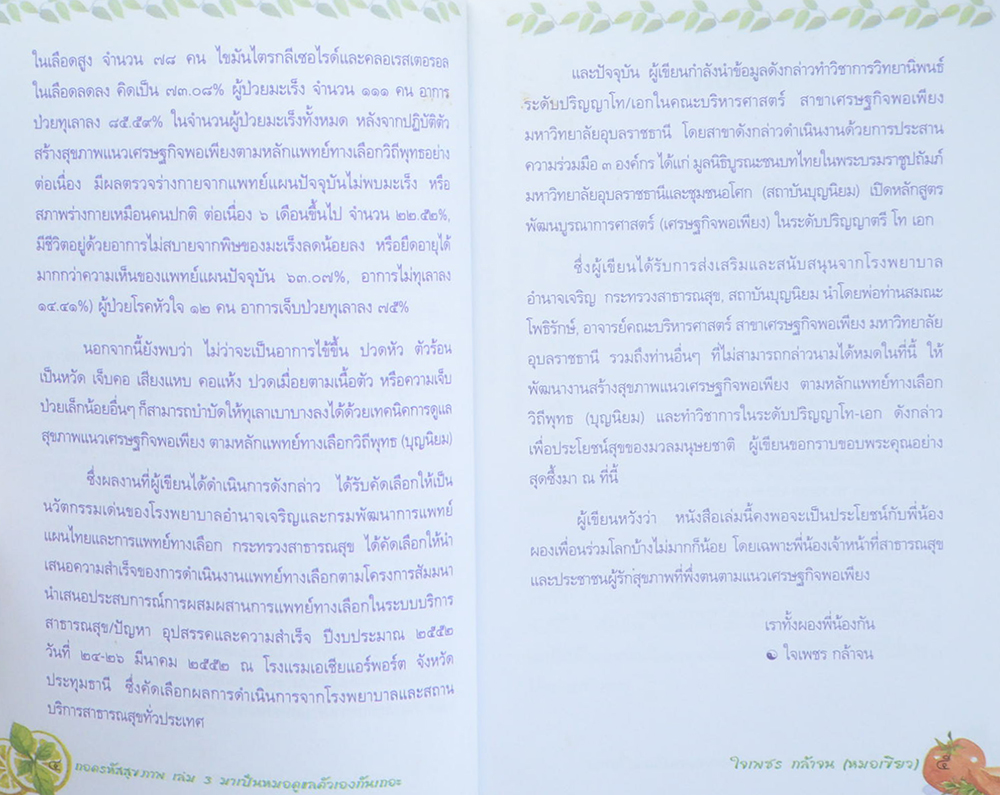 ในเลือดสูง จำนวน ๗๘ คน ไขมันไตรกลีเซอไรด์และคลอเรสเตอรอล
ในเลือดลดลง คิดเป็น ๗๓.๐๘% ผู้ป่วยมะเร็ง จำนวน ๑๑๑ คน อาการ
ป่วยทุเลาลง ๘๕.๕๙% ในจำนวนผู้ป่วยมะเร็งทั้งหมด หลังจากปฏิบัติตัว
สร้างสุขภาพแนวเศรษฐกิจพอเพียงตามหลักแพทย์ทางเลือกวิถีพุทธอย่าง
ต่อเนื่อง มีผลตรวจร่างกายจากแพทย์แผนปัจจุบันไม่พบมะเร็ง หรือ
สภาพร่างกายเหมือนคนปกติ ต่อเนื่อง ๖ เดือนขึ้นไป จำนวน ๒๒.๕๒%,
มีชีวิตอยู่ด้วยอาการไม่สบายจากพิษของมะเร็งลดน้อยลง หรือยืดอายุได้
มากกว่าความเห็นของแพทย์แผนปัจจุบัน ๖๓.๐๗%, อาการไม่ทุเลาลง
๑๔.๔๑%) ผู้ป่วยโรคหัวใจ ๑๒ คน อาการเจ็บป่วยทุเลาลง ๗๕%
นอกจากนี้ยังพบว่า ไม่ว่าจะเป็นอาการไข้ขึ้น ปวดหัว ตัวร้อน
เป็นหวัด เจ็บคอ เสียงแหบ คอแห้ง ปวดเมื่อยตามเนื้อตัว หรือความเจ็บ
ป่วยเล็กน้อยอื่นๆ ก็สามารถบำบัดให้ทุเลาเบาบางลงได้ด้วยเทคนิคการดูแล
สุขภาพแนวเศรษฐกิจพอเพียง ตามหลักแพทย์ทางเลือกวิถีพุทธ (บุญนิยม)
ซึ่งผลงานที่ผู้เขียนได้ดำเนินการดังกล่าว ได้รับคัดเลือกให้เป็น
นวัตกรรมเด่นของโรงพยาบาลอำนาจเจริญและกรมพัฒนาการแพทย์
แผนไทยและการแพทย์ทางเลือก กระทรวงสาธารณสุข ได้คัดเลือกให้นำ
เสนอความสำเร็จของการดำเนินงานแพทย์ทางเลือกตามโครงการสัมมนา
นำเสนอประสบการณ์การผสมผสานการแพทย์ทางเลือกในระบบบริการ
สาธารณสุข/ปัญหา อุปสรรคและความสำเร็จ ปีงบประมาณ ๒๕๕๒
วันที่ ๒๔-๒๖ มีนาคม ๒๕๕๒ ณ โรงแรมเอเชียแอร์พอร์ต จังหวัด
ปทุมธานี ซึ่งคัดเลือกผลการดำเนินการจากโรงพยาบาลและสถาน
บริการสาธารณสุขทั่วประเทศ
ถอดรหัสสุขภาพ เล่ม 3 มาเป็นหมอดูแลตัวเองกันเถอะ
และปัจจุบัน ผู้เขียนกำลังนำข้อมูลดังกล่าวทำวิชาการวิทยานิพนธ์
ระดับปริญญาโท/เอกในคณะบริหารศาสตร์ สาขาเศรษฐกิจพอเพียง
มหาวิทยาลัยอุบลราชธานี โดยสาขาดังกล่าวดำเนินงานด้วยการประสาน
ความร่วมมือ ๓ องค์กร ได้แก่ มูลนิธิบูรณะชนบทไทยในพระบรมราชูปถัมภ์
มหาวิทยาลัยอุบลราชธานีและชุมชนอโศก (สถาบันบุญนิยม) เปิดหลักสูตร
พัฒนบูรณาการศาสตร์ (เศรษฐกิจพอเพียง) ในระดับปริญญาตรี โท เอก
ซึ่งผู้เขียนได้รับการส่งเสริมและสนับสนุนจากโรงพยาบาล
อำนาจเจริญ กระทรวงสาธารณสุข, สถาบันบุญนิยม นำโดยพ่อท่านสมณะ
โพธิรักษ์, อาจารย์คณะบริหารศาสตร์ สาขาเศรษฐกิจพอเพียง มหาวิทยาลัย
อุบลราชธานี รวมถึงท่านอื่นๆ ที่ไม่สามารถกล่าวนามได้หมดในที่นี้ ให้
พัฒนางานสร้างสุขภาพแนวเศรษฐกิจพอเพียง ตามหลักแพทย์ทางเลือก
วิถีพุทธ (บุญนิยม) และทำวิชาการในระดับปริญญาโท-เอก ดังกล่าว
เพื่อประโยชน์สุขของมวลมนุษยชาติ ผู้เขียนขอกราบขอบพระคุณอย่าง
สุดซึ้งมา ณ ที่นี้
ผู้เขียนหวังว่า หนังสือเล่มนี้คงพอจะเป็นประโยชน์กับพี่น้อง
ผองเพื่อนร่วมโลกบ้างไม่มากก็น้อย โดยเฉพาะพี่น้องเจ้าหน้าที่สาธารณสุข
และประชาชนผู้รักสุขภาพที่พึ่งตนตามแนวเศรษฐกิจพอเพียง
เราทั้งผองพี่น้องกัน
☯ ใจเพชร กล้าจน
ใจเพชร กล้าจน (หมอเขียว)